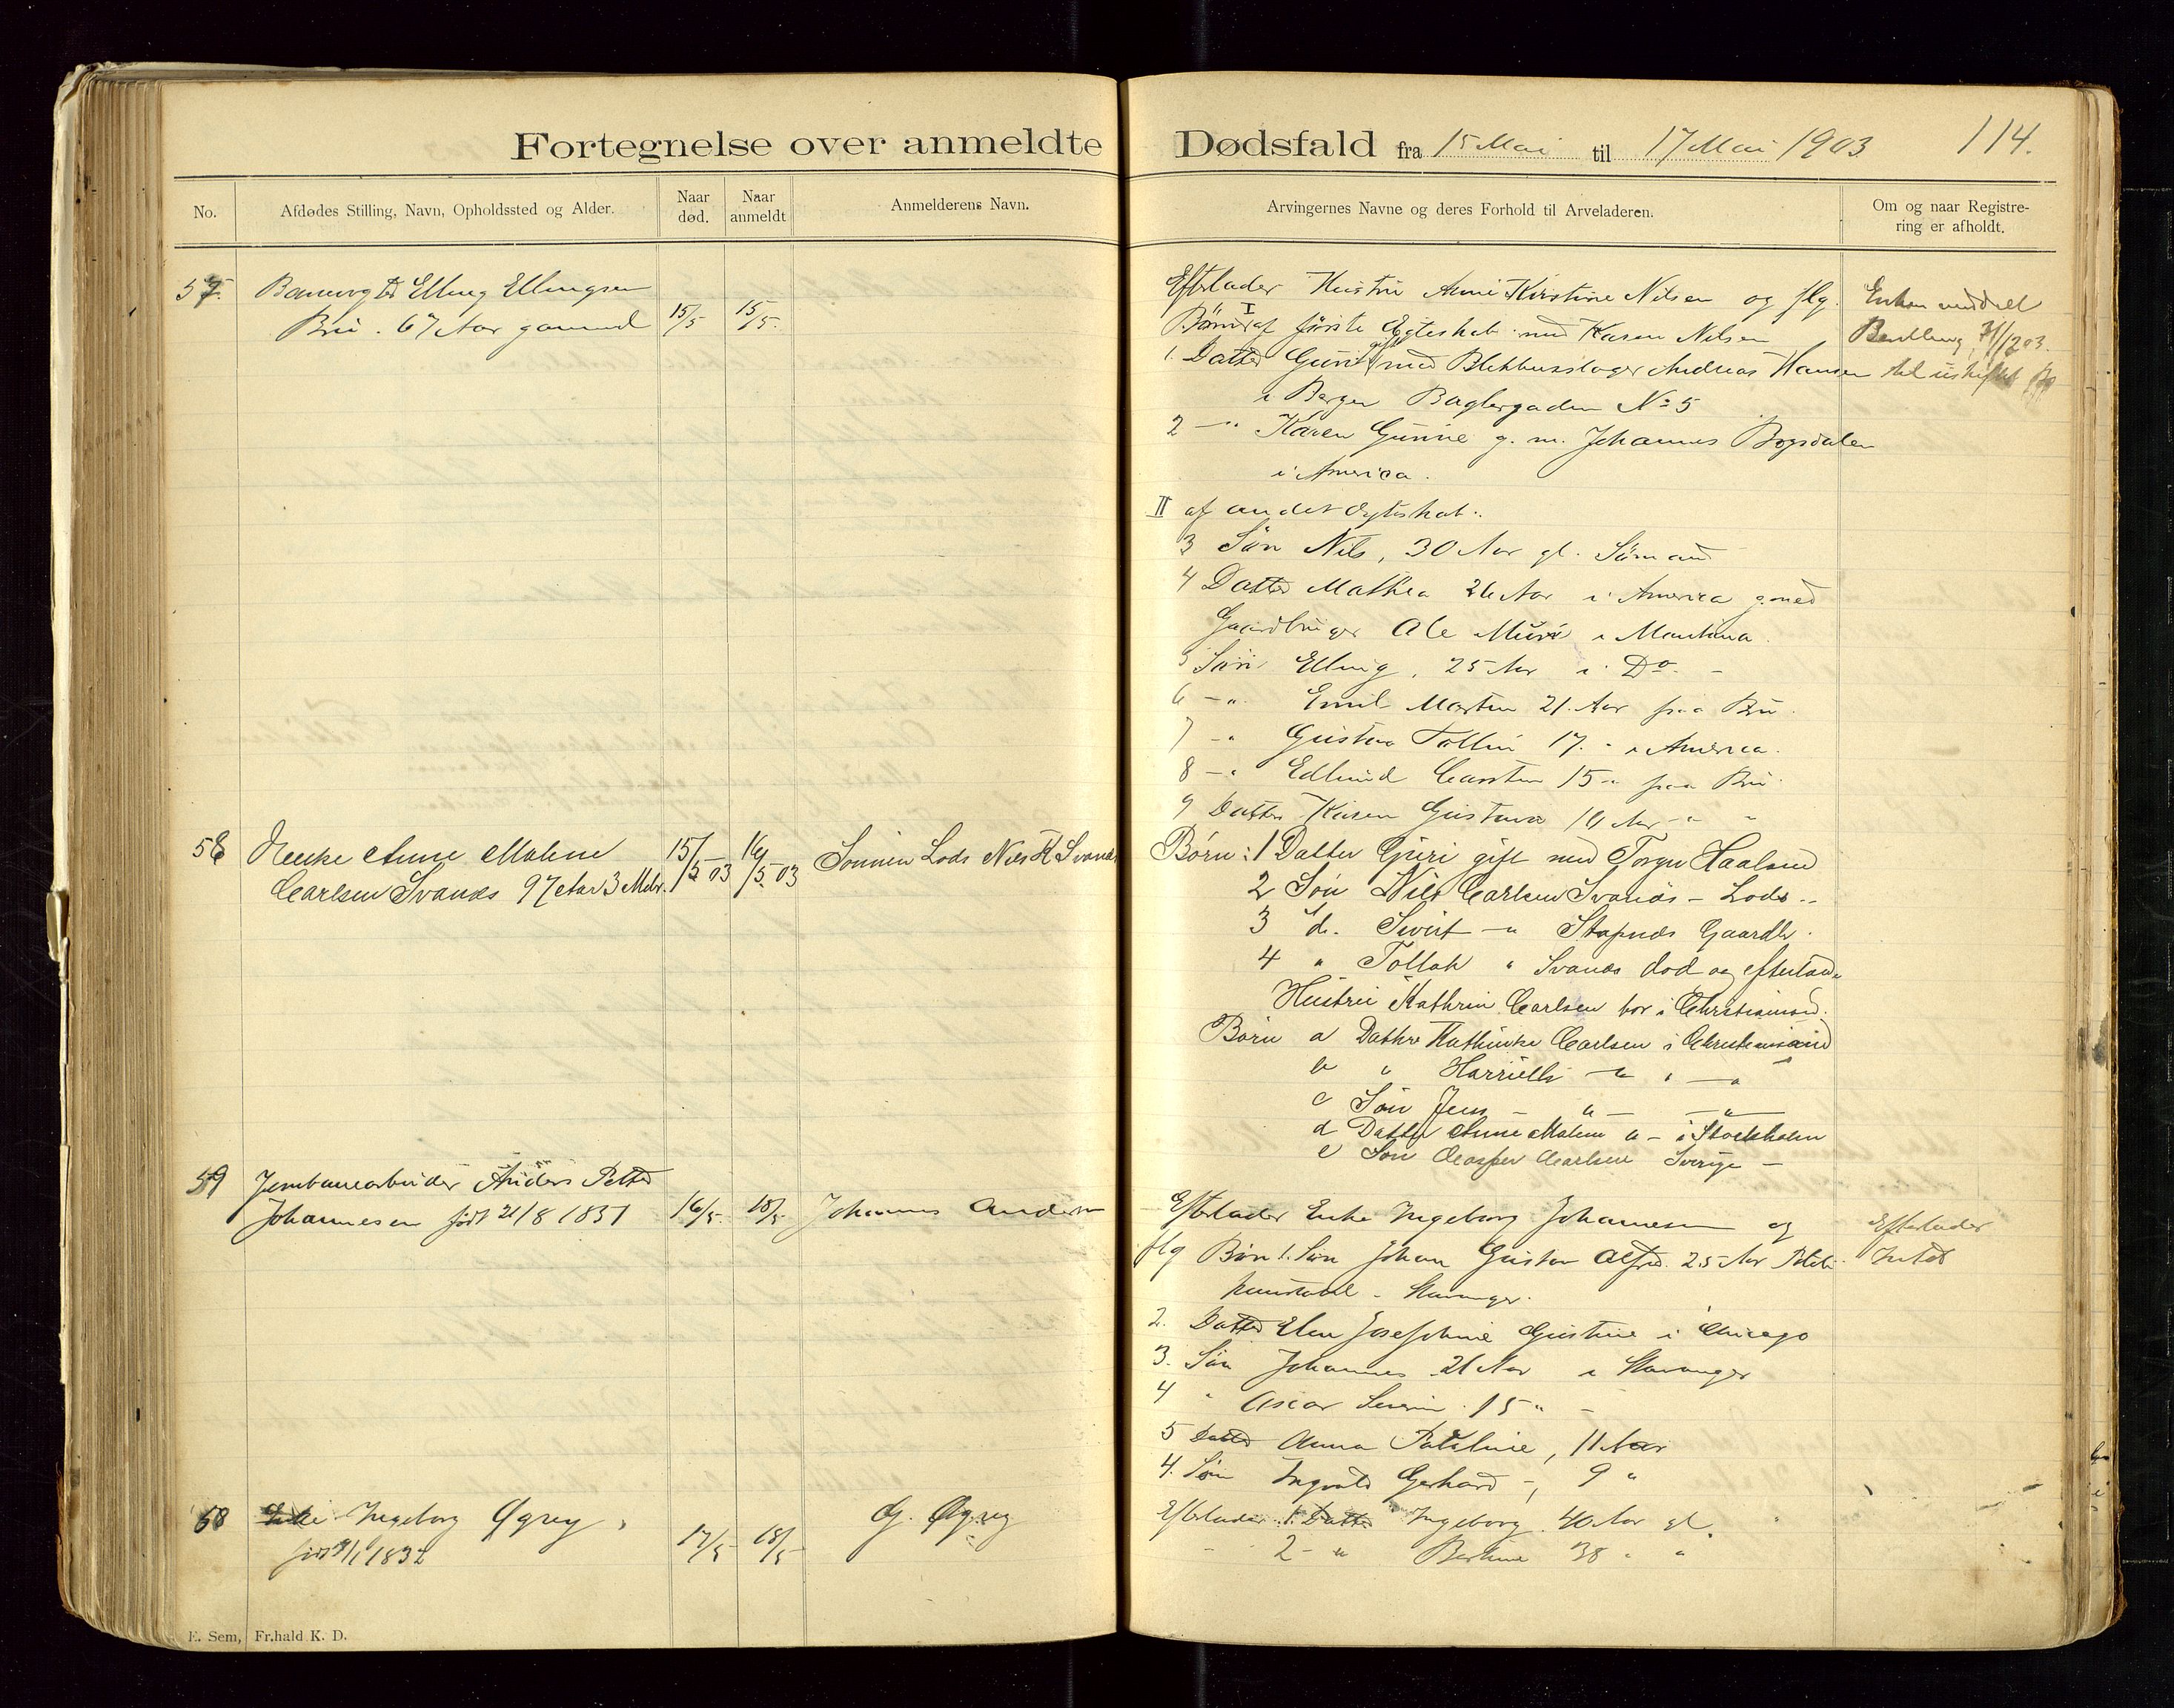 Fortegnelse over anmeldte Dødsfald fra 15 Mai til 17 Mai 1903 114.
No. Afdødes Stilling, Navn, Opholdssted og Alder. Naar død. Naar anmeldt Anmelderens Navn. Arvingernes Navne og deres Forhold til Arveladeren. Om og naar Registrering er afholdt.
57. Elling Ellingsen
Bru. 67 Aar gammel 15/5 15/5.
Efterlader Hustru Anne Kirstine Nilsen og flg.
Børn I af første Egteskab med Karen Nilsen
1. Datter Guri gift med Blikkenslager Andreas Hansen
i Bergen Baglergaden No 5
2 -"- Karen Gurine g. m. Johannes Bogsdalen
i America.
II af andet Egteskab.
3 Søn Nils, 30 Aar gl. Sømand
4 Datter Mathea 26 Aar i America g. med
Gaardbruger Ole i Montana.
5 Søn Elling, 25 Aar i Do. -
6 -"- Emil Martin 21. Aar paa Bru.
7 -"- Gustav Tollin 17. " i America.
8 -"- Edlund Carsten 15 " paa Bru
9 Datter Karen Gustava 10 Aar " "
Enken meddelt
Bevilling 31/12 03.
58 Enke Anne Malene
Carlsen Svanæs 97 Aar 3 Mdr. 15/5 03 16/5 03 Sønnen Lods Nils K Svanæs
Børn: 1 Datter Guri gift med Torger Haaland
2 Søn Nils Carlsen Svanæs - Lods
3 do. Sivert -"- Stapnæs Gaardb.
4 " Tollak " Svanæs død og efterlader
Hustru Kathrin Carlsen bor i Christiansand.
Børn a Datter Kathinka Carlsen i Christiansand
b " Harriette -"- " -"-
c Søn Jens - " - -"-
d Datter Anne Malene " - i Stockholm
e Søn Casper Carlsen Sverige -
59 Jernbanearbeider Anders Petter
Johannesen født 21/8 1837 16/5. 18/5 Johannes Andersen
Efterlader Enke Ingeborg Johannesen og
flg Børn 1. Søn Johan Gustav Alfred. 25 Aar
- Stavanger.
2. Datter Elen Josephine Gustine i Chicago
3. Søn Johannes 21 Aar i Stavanger
4 " Oscar Severin. 15 " -
5 Datter Anna Pauline, 11 Aar
4. Søn Ingvald Gerhard -, 9 "
Efterlader
Intet
60 Enke Ingeborg Øgrey
født 9/1 1832 17/5 18/5 G. Øgrey
Efterlader 1. Datter Ingeborg 40 Aar gl.
- 2 - " Bertine 38 " "
E. Sem, Fr.hald K. D.